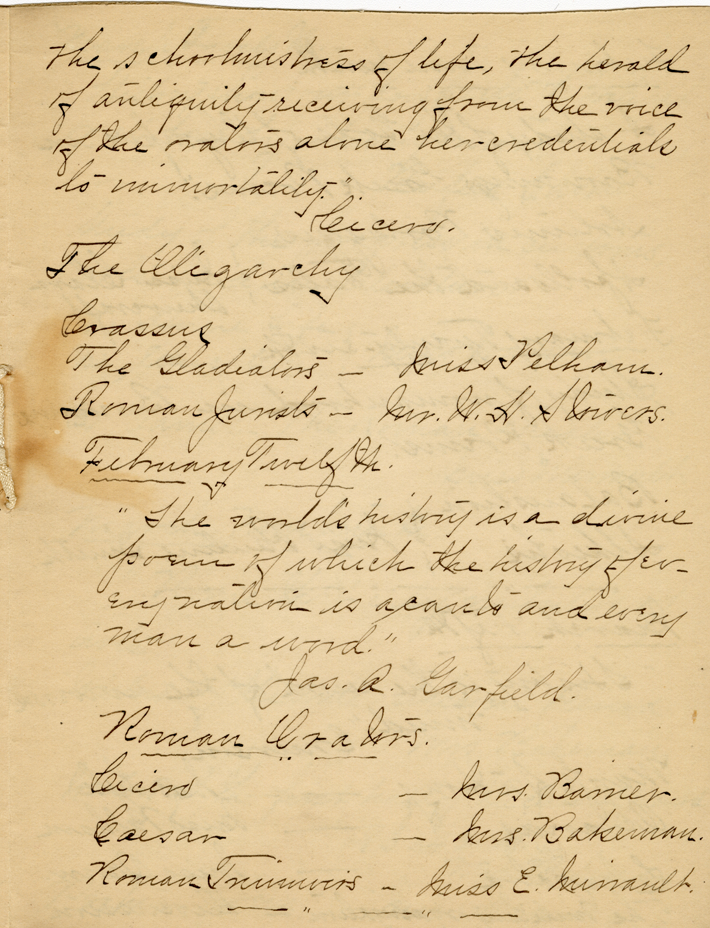 the schoolmistress of life, the herald
of antiquity receiving from the voice
of the orators alone her credentials
to immortality."
Cicero.
The Oligarchy
Crassus
The Gladiators — Miss Pelham.
Roman Jurists — Mr. W. H. Stowers.
February Twelfth.
"The world's history is a divine
poem of which the history of ev-
ery nation is a canto and every
man a word."
Jas. A. Garfield.
Roman Orators.
Cicero — Mrs. Barrier.
Caesar — Mrs. Bakeman.
Roman Triumvirs — Miss E. Mirrault.